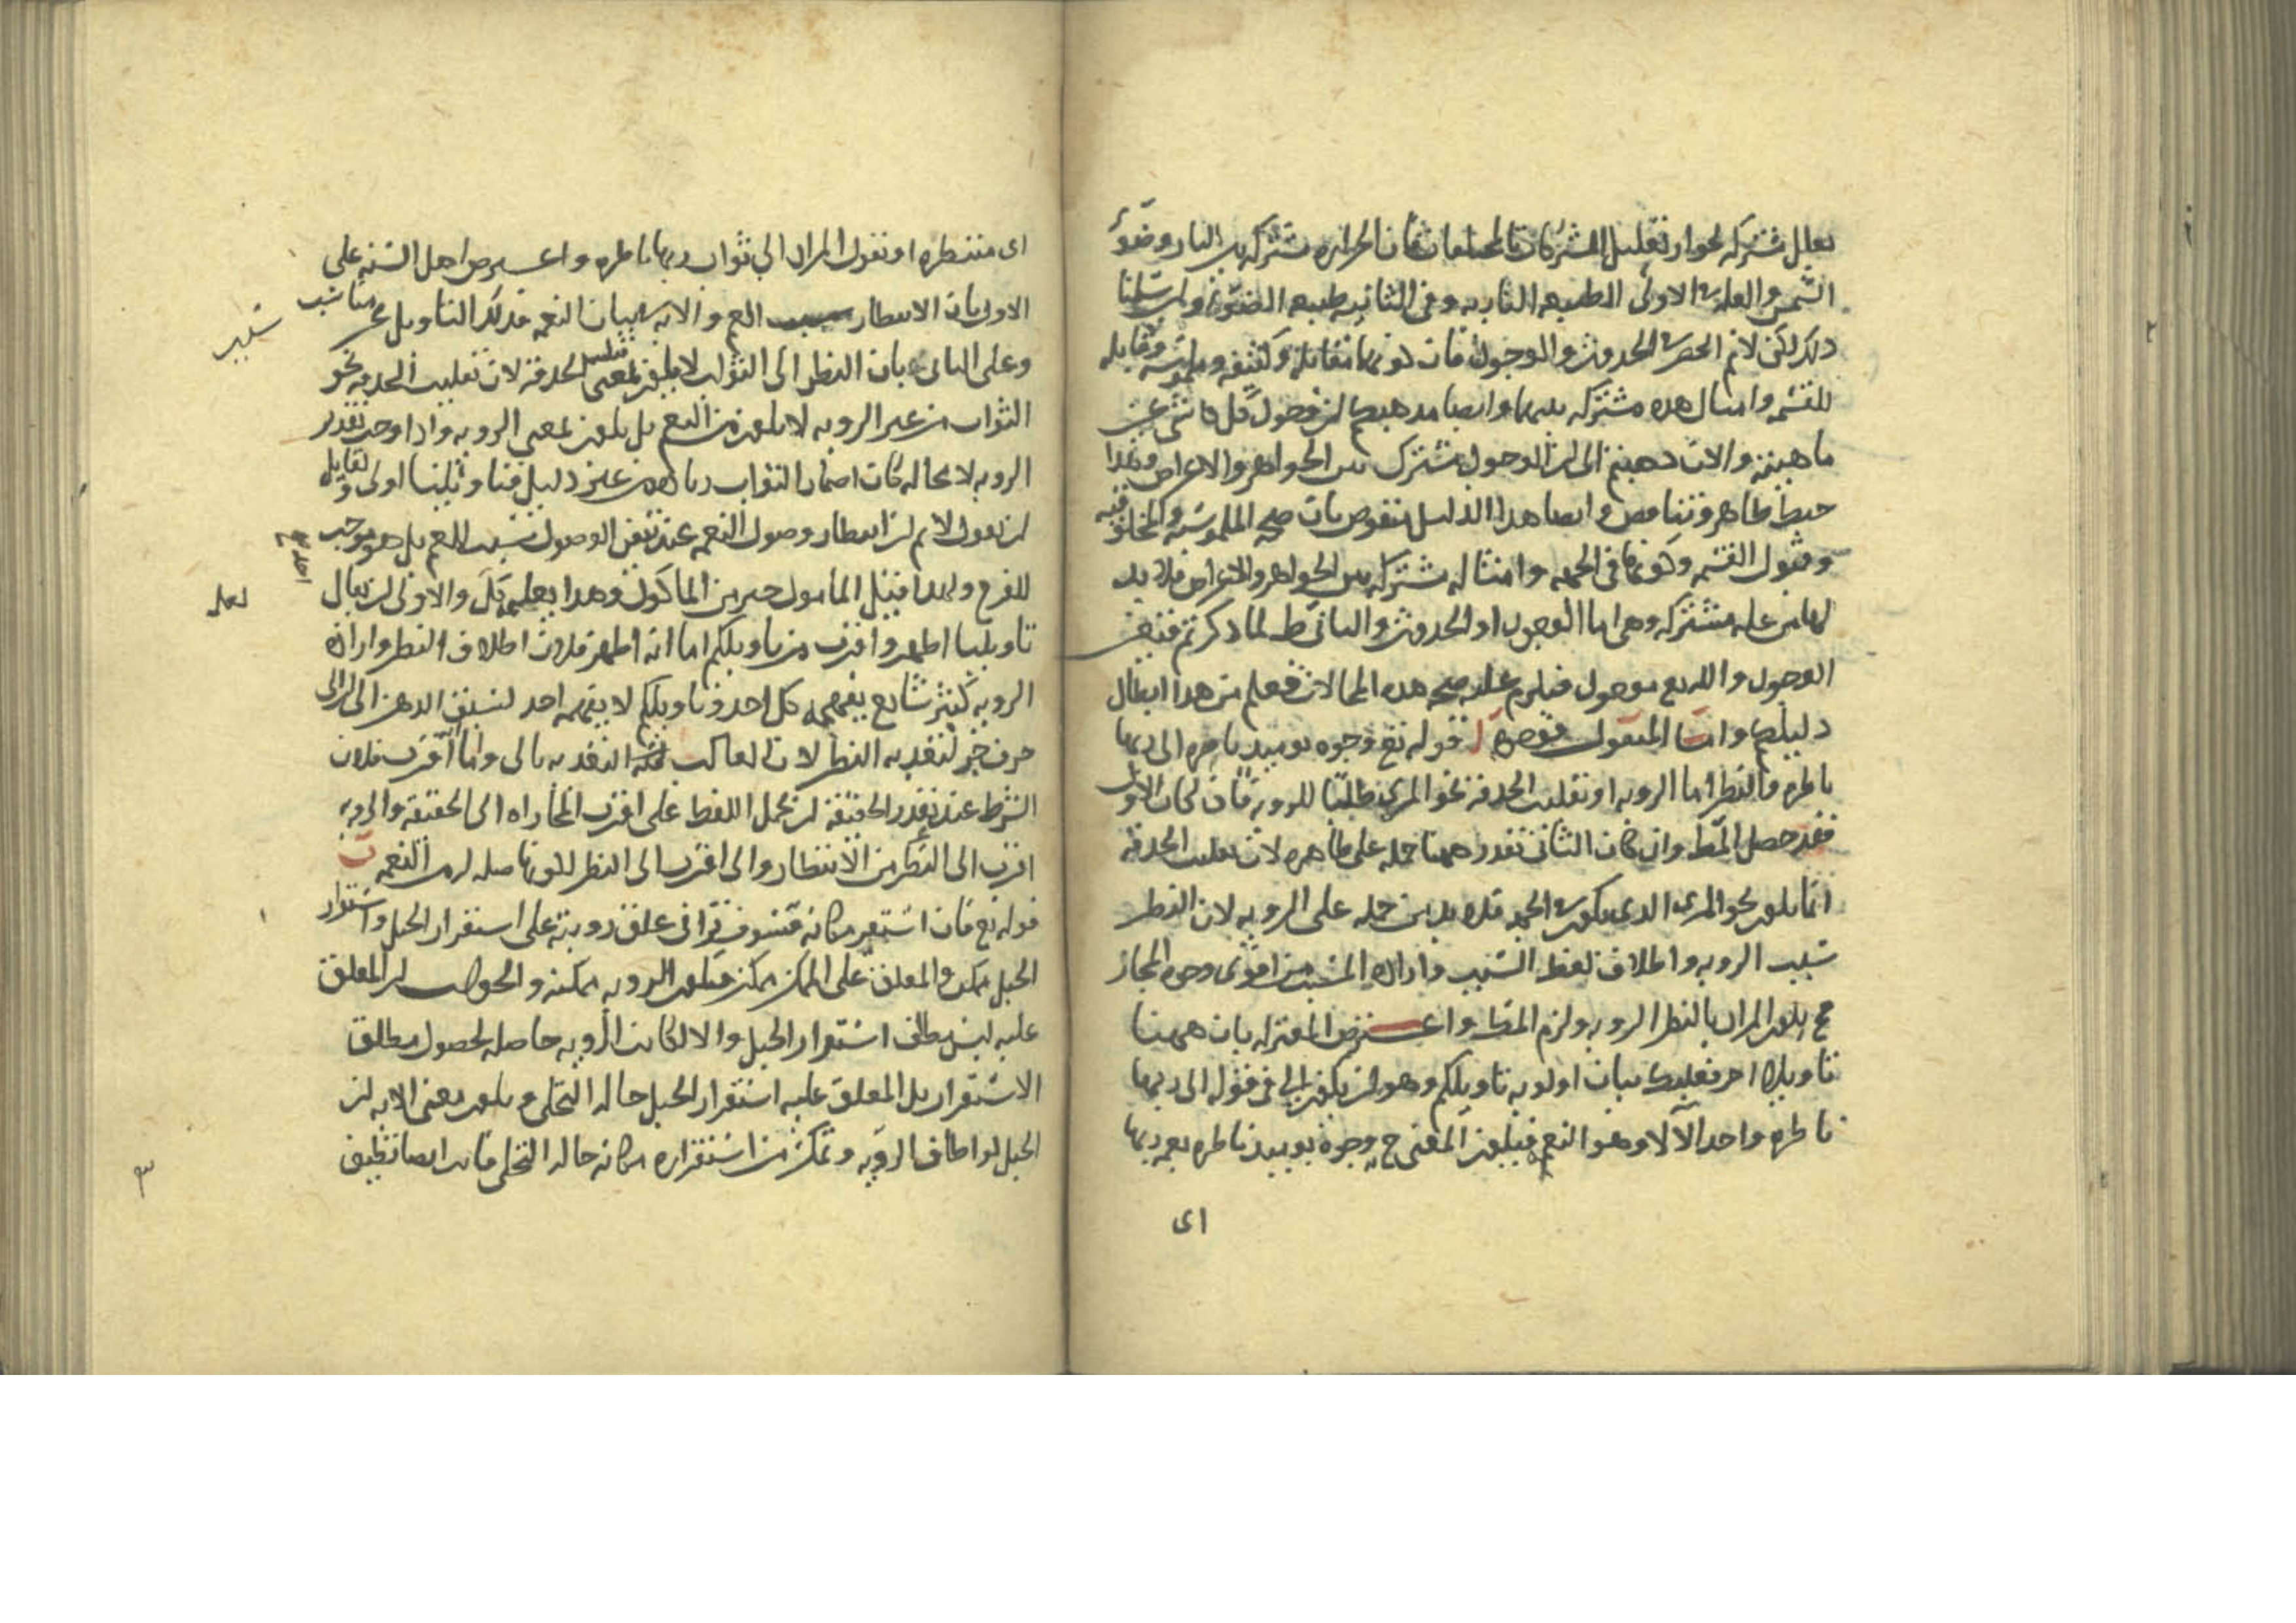 بعلل مشتركه لجواز تعليل المشتركات بالمختلفات فان الحراره مشتركه بين النار وضوء
الشمس والعله في الاولى الطبيعه الناريه وفي الثانيه طبيعه الضوء ولو سلمنا
ذلك لكن لانم الحصر في الحدوث والوجود فان كونهما مقابلة وكثيفه وملموسه وقابله
للقسمه وامثال هذه مشتركه بينهما وايضا مذهبكم ان وجود كل شئ عين
ماهيته والان ذهبتم الى ان الوجود مشترك بين الجواهر والاعراض وهذا
خبط ظاهر وتناقض وايضا هذا الدليل منقوض بان صحه الملموسيه والمخلوقيه
وقبول القسمه وكونها في الجهه وامثاله مشتركه بين الجواهر والاعراض فلا بد
لها من عله مشتركه وهي اما الوجود او الحدوث والثاني بط لما ذكرتم فتعين
الوجود والله تع موجود فيلزم عليه صحه هذه المحالات فعلم من هذا ابطال
دليلكم واما المنقول فوجوه ا قوله تع وجوه يوميذ ناضره الى ربها
ناظره والنظر اما الرويه او تقليب الحدقه نحو المرئى طلبا للرويه فان كان الاول
فقد حصل المط وان كان الثاني تعذر ههنا حمله على ظاهره لان تقليب الحدقه
انما يكون نحو المرئى الذي يكون في الجهه فلا بد من حمله على الرويه لان النظر
سبب الرويه واطلاق لفظ السبب واراده المسبب من اقوى وجوه المجاز
فح يكون المراد بالنظر الرويه ولزم المط واعترض المعتزله بان ههنا
تاويلا اخر فعليكم ببيان اولويه تاويلكم وهو ان يكون الى في قوله الى ربها
ناظره واحد الآلاء وهو النعم فيكون المعنى ح وجوه يوميذ ناظره نعمه ربها
اى
اى منتظره او نقول المراد الى ثواب ربها ناظره واعترض اهل السنه على
الاول بان الانتظار سبب الغم والايه لبيان النعم فذلك التاويل غير مناسب
سبب
وعلى الثاني بان النظر الى الثواب لا يكون بمعنى تقليب الحدقه لان تقليب الحدقه نحو
الثواب من غير الرويه لا يكون من النعم بل يكون بمعنى الرويه واذا وجب تقدير
الرويه لا محاله كان اضمار الثواب زياده من غير دليل فتاويلنا اولى ولقايل
ان يقول لانم ان انتظار وصول النعمه عند تيقن الوصول سبب للغم بل هو موجب
للفرح ولهذا قيل المامول خير من الماكول وهذا يعلم كل والاولى ان يقال
لعله
تاويلنا اظهر واقرب من تاويلكم اما انه اظهر فلان اطلاق النظر واراده
الرويه كثير شايع يفهمه كل احد وتاويلكم لا يفهمه احد لسبق الذهن الى ان الى
حرف جر لتعديه النظر لان الغالب التعديه بالى واما اقرب فلان
الشرط عند تعذر الحقيقه ان يحمل اللفظ على اقرب المجازات الى الحقيقه والرويه
اقرب الى النظر من الانتظار والى اقرب الى النظر لكونها صله له من النعمه ب
قوله تع فان استقر مكانه فسوف تراني علق رويته على استقرار الجبل واستقرار
الجبل ممكن والمعلق على الممكن ممكن فيكون الرويه ممكنه والجواب ان المعلق
عليه ليس مطلق استقرار الجبل والا لكانت الرويه حاصله لحصول مطلق
الاستقرار بل المعلق عليه استقرار الجبل حاله التجلي ويكون معنى الايه ان
الجبل لو اطاق الرويه وتمكن من استقراره مكانه حاله التجلي فانت ايضا تطيق